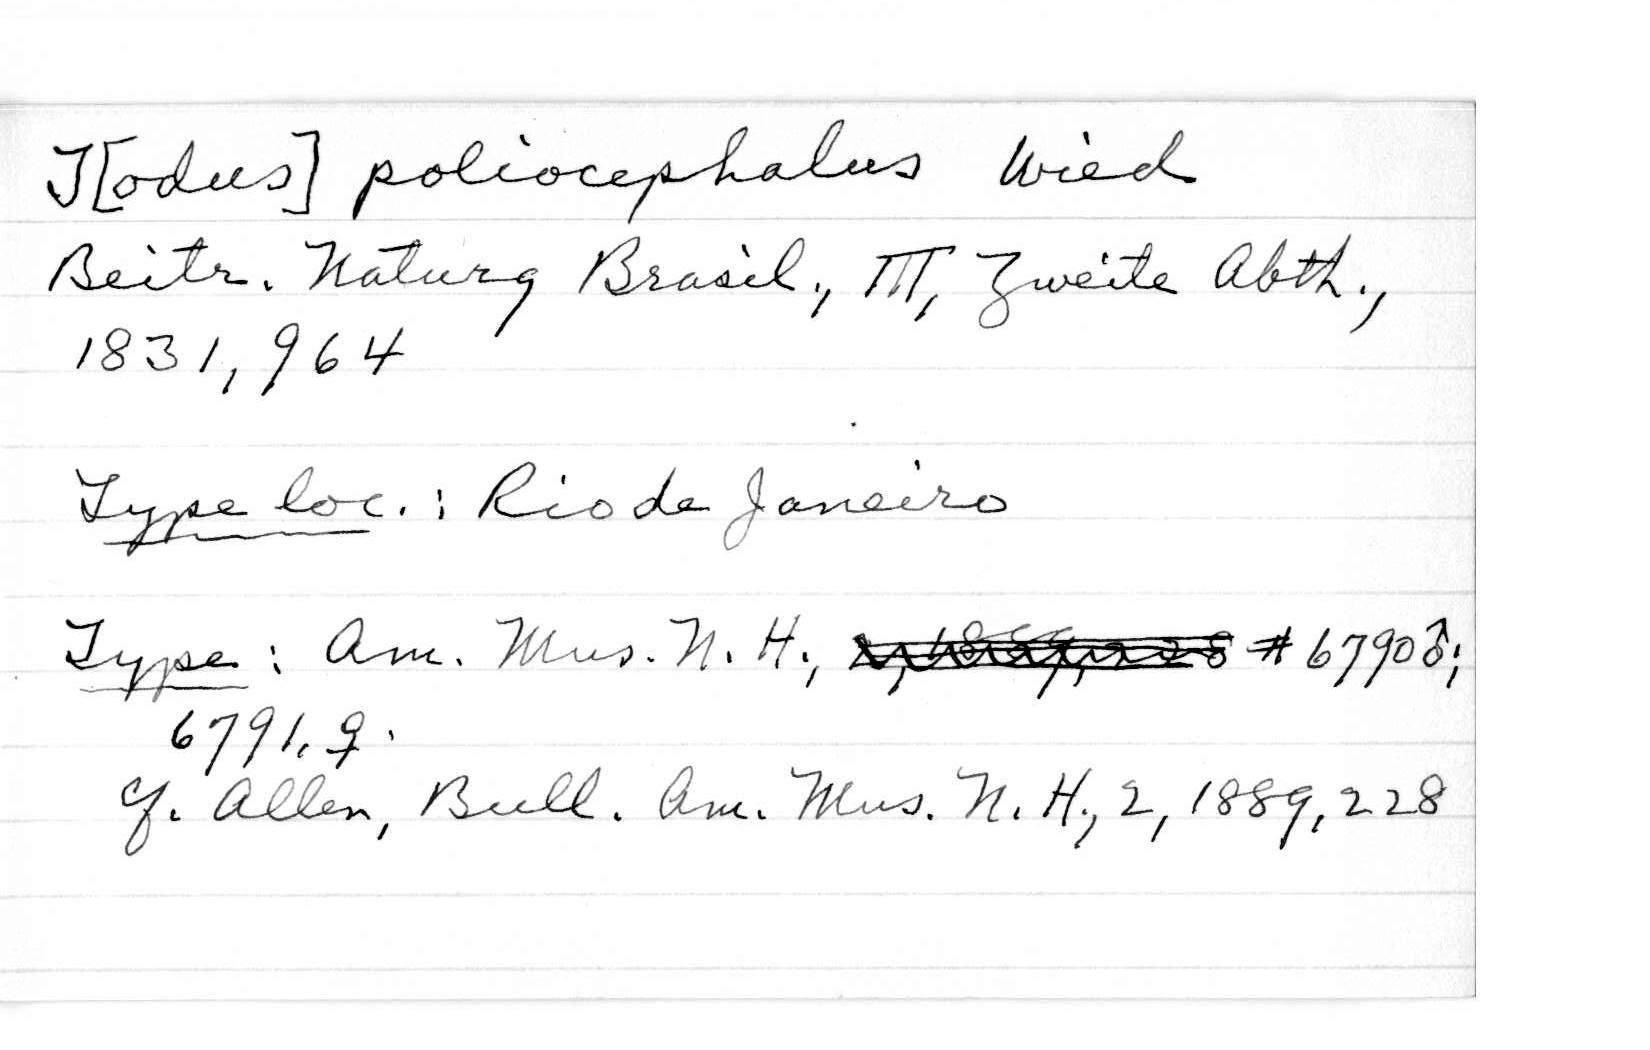 T[odus] poliocephalus Wied
Beitr. Naturg Brasil., III, Zweite Abth.,
1831, 964
Type loc.: Rio de Janeiro
Type: Am. Mus. N. H., # 6790♂;
6791, ♀.
cf. Allen, Bull. Am. Mus. N. H., 2, 1889, 228